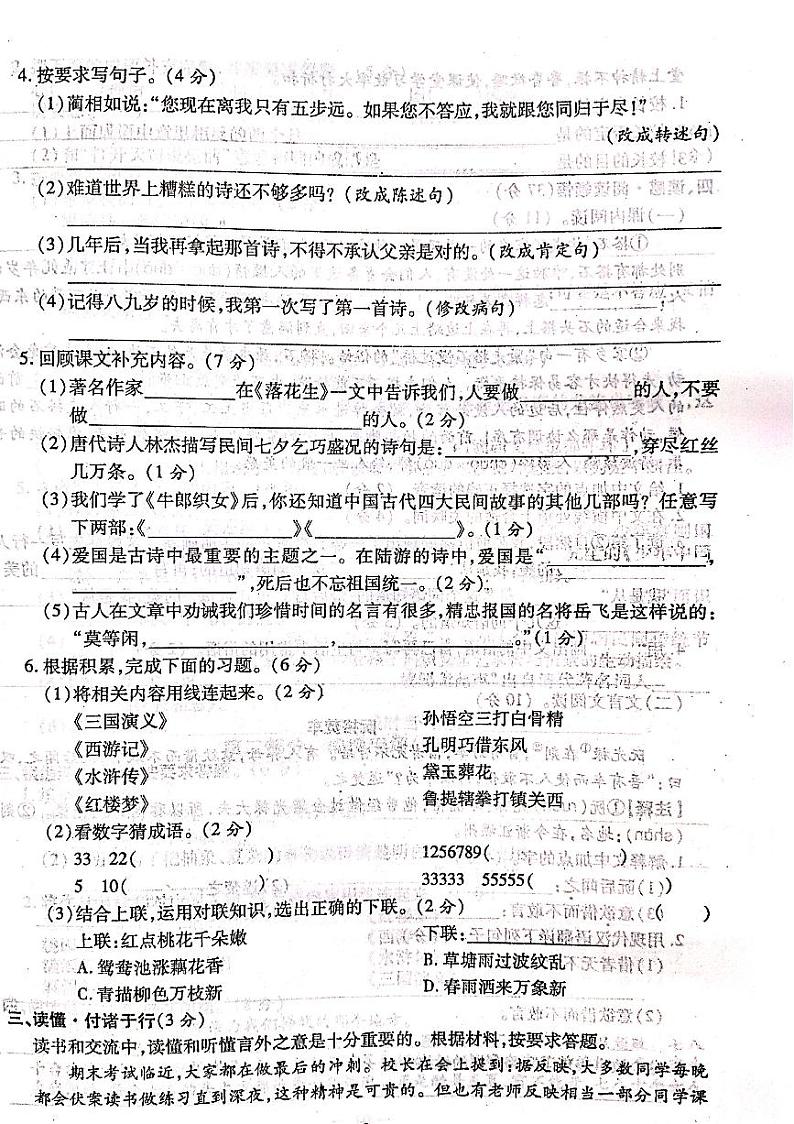 4. 按要求写句子。(4分)
(1)蔺相如说:“您现在离我只有五步远。如果您不答应,我就跟您同归于尽!”
(改成转述句)
(2)难道世界上糟糕的诗还不够多吗?(改成陈述句)
(3)几年后,当我再拿起那首诗,不得不承认父亲是对的。(改成肯定句)
(4)记得八九岁的时候,我第一次写了第一首诗。(修改病句)
5. 回顾课文补充内容。(7分)
(1)著名作家________在《落花生》一文中告诉我们,人要做__________的人,不要
做________________________的人。(2分)
(2)唐代诗人林杰描写民间七夕乞巧盛况的诗句是:________________,穿尽红丝
几万条。(1分)
(3)我们学了《牛郎织女》后,你还知道中国古代四大民间故事的其他几部吗?任意写
下两部:《____________》《____________》。(1分)
(4)爱国是古诗中最重要的主题之一。在陆游的诗中,爱国是“______________,
______________”,死后也不忘祖国统一。(2分)
(5)古人在文章中劝诫我们珍惜时间的名言有很多,精忠报国的名将岳飞是这样说的:
“莫等闲,________________,________________。”(1分)
6. 根据积累,完成下面的习题。(6分)
(1)将相关内容用线连起来。(2分)
《三国演义》 孙悟空三打白骨精
《西游记》 孔明巧借东风
《水浒传》 黛玉葬花
《红楼梦》 鲁提辖拳打镇关西
(2)看数字猜成语。(2分)
33 22( ) 1256789( )
5 10( ) 33333 55555( )
(3)结合上联,运用对联知识,选出正确的下联。(2分) ( )
上联:红点桃花千朵嫩 下联:________________
A. 鸳鸯池涨藕花香 B. 草塘雨过波纹乱
C. 青描柳色万枝新 D. 春雨洒来万象新
三、读懂·付诸于行(3分)
读书和交流中,读懂和听懂言外之意是十分重要的。根据材料,按要求答题。
期末考试临近,大家都在做最后的冲刺。校长在会上提到:据反映,大多数同学每晚
都会伏案读书做练习直到深夜,这种精神是可贵的。但也有老师反映相当一部分同学课